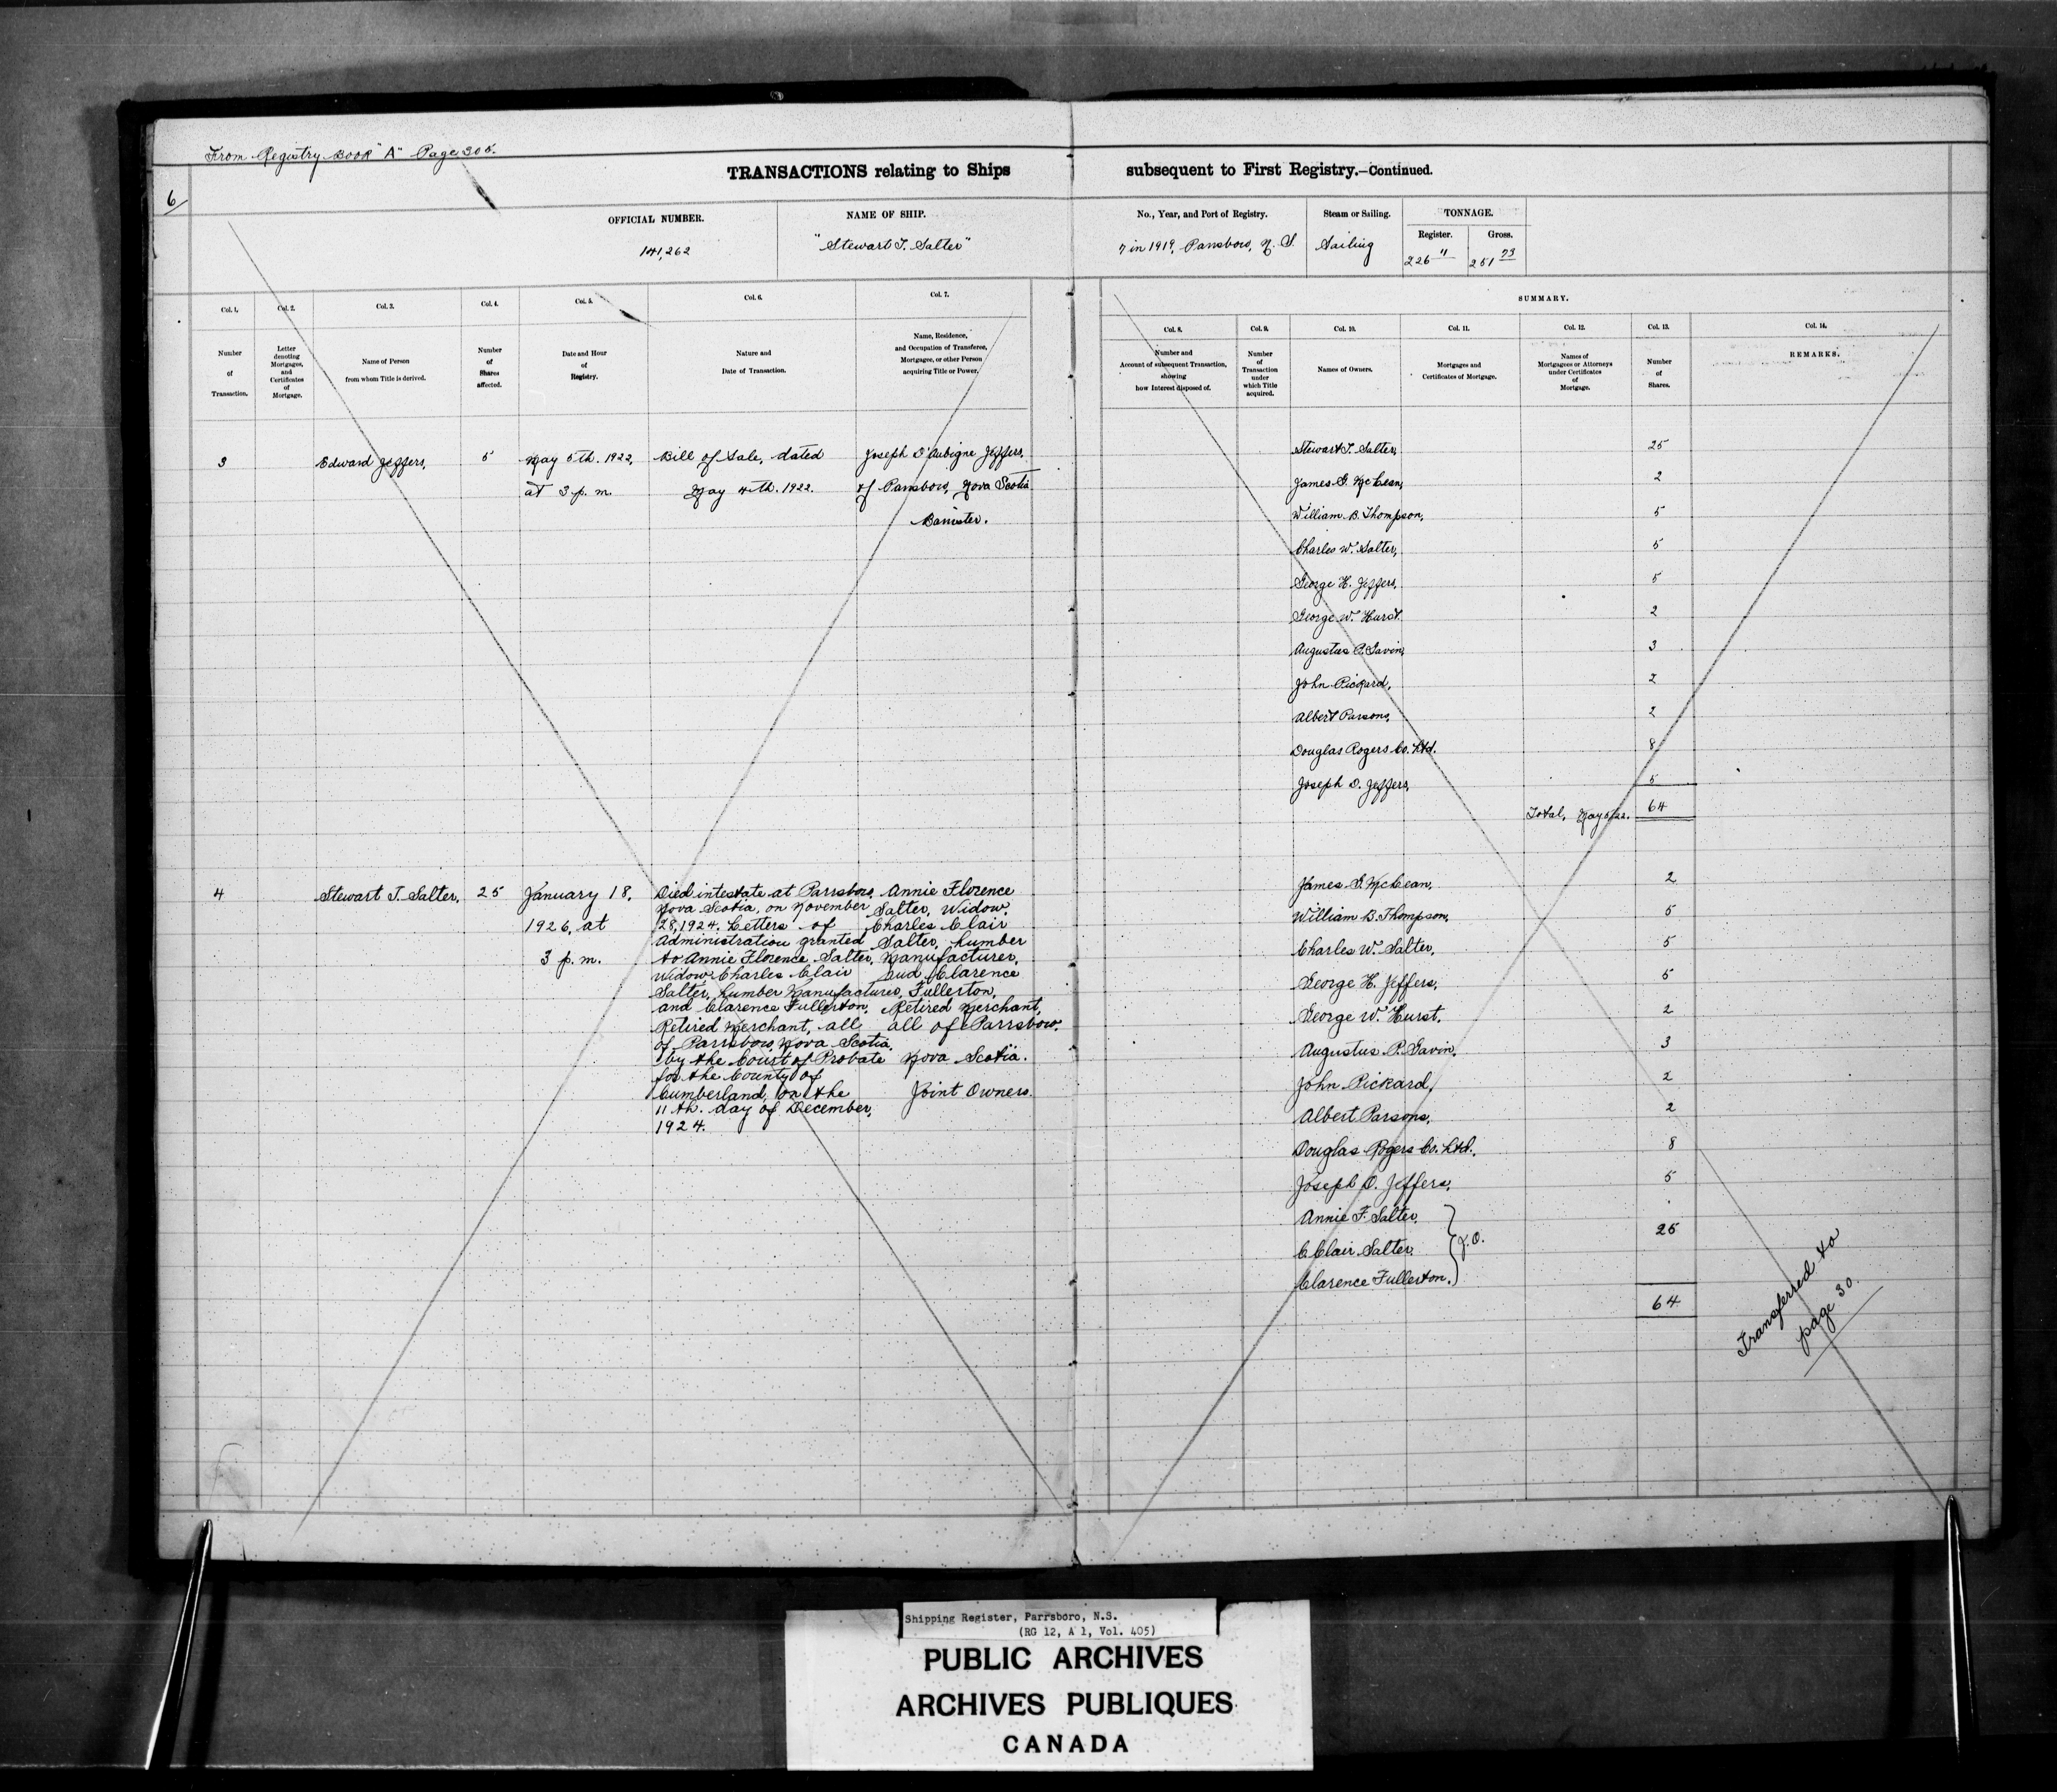 From Registry Book "A" Page 305.
TRANSACTIONS relating to Ships subsequent to First Registry.—Continued.
6
OFFICIAL NUMBER.
141,262
NAME OF SHIP.
"Stewart T. Salter"
No., Year, and Port of Registry.
7 in 1919, Parrsboro, N. S.
Steam or Sailing.
Sailing
TONNAGE.
Register.
226 11
Gross.
251 73
Col. 1.
Number
of
Transaction.
Col. 2.
Letter
denoting
Mortgages,
and
Certificates
of
Mortgage.
Col. 3.
Name of Person
from whom Title is derived.
Col. 4.
Number
of
Shares
affected.
Col. 5.
Date and Hour
of
Registry.
Col. 6.
Nature and
Date of Transaction.
Col. 7.
Name, Residence,
and Occupation of Transferee,
Mortgagee, or other Person
acquiring Title or Power.
SUMMARY.
Col. 8.
Number and
Account of subsequent Transaction,
showing
how Interest disposed of.
Col. 9.
Number
of
Transaction
under
which Title
acquired.
Col. 10.
Names of Owners.
Col. 11.
Mortgages and
Certificates of Mortgage.
Col. 12.
Names of
Mortgagees or Attorneys
under Certificates
of
Mortgage.
Col. 13.
Number
of
Shares.
Col. 14.
REMARKS.
3
Edward Jeffers,
5
May 5th. 1922,
at 3 p. m.
Bill of Sale, dated
May 4th. 1922.
Joseph D'Aubigne Jeffers,
of Parrsboro, Nova Scotia
Barrister.
Stewart T. Salter, 25
James G. McLean, 2
William B. Thompson, 5
Charles W. Salter, 5
George H. Jeffers, 5
George W. Hurst. 2
Augustus P. Gavin, 3
John Rickard, 2
Albert Parsons, 2
Douglas Rogers Co. Ltd. 8
Joseph D. Jeffers, 5
Total, May 5/22. 64
4
Stewart T. Salter,
25
January 18,
1926, at
3 p. m.
Died intestate at Parrsboro,
Nova Scotia, on November
28, 1924. Letters of
Administration granted
to Annie Florence Salter,
Widow, Charles Clair
Salter, Lumber Manufacturer,
and Clarence Fullerton,
Retired Merchant, all
of Parrsboro, Nova Scotia,
by the Court of Probate
for the County of
Cumberland, on the
11th. day of December,
1924.
Annie Florence
Salter, Widow,
Charles Clair
Salter, Lumber
Manufacturer,
and Clarence
Fullerton,
Retired Merchant,
all of Parrsboro,
Nova Scotia.
Joint Owners.
James G. McLean, 2
William B. Thompson, 5
Charles W. Salter, 5
George H. Jeffers, 5
George W. Hurst. 2
Augustus P. Gavin, 3
John Rickard, 2
Albert Parsons, 2
Douglas Rogers Co. Ltd., 8
Joseph D. Jeffers, 5
Annie F. Salter,
C. Clair Salter, J.O. 25
Clarence Fullerton.
64
Transferred to
page 30.
Shipping Register, Parrsboro, N.S.
(RG 12, A 1, Vol. 405)
PUBLIC ARCHIVES
ARCHIVES PUBLIQUES
CANADA